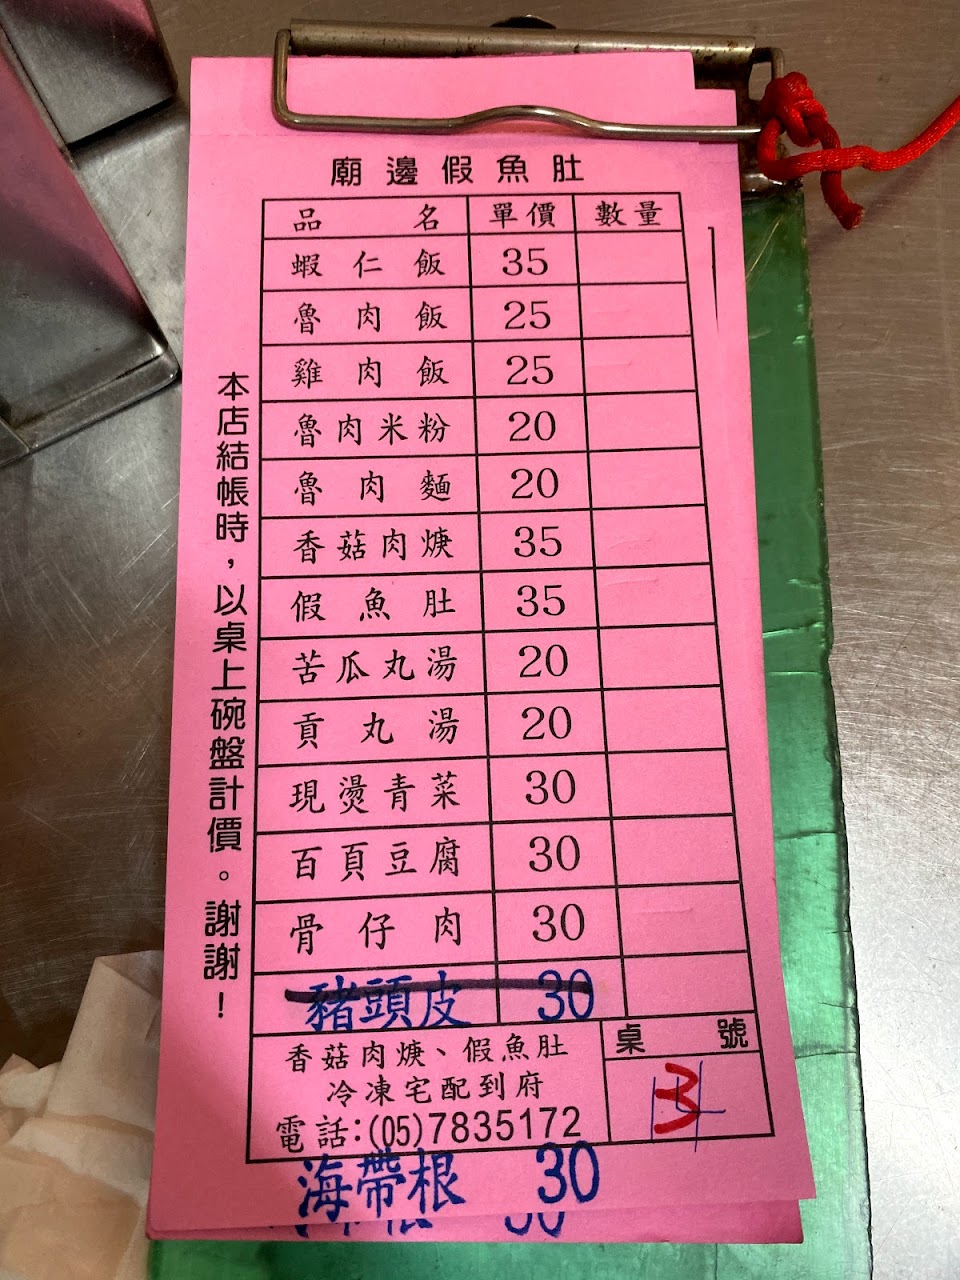 廟邊假魚肚
品名 單價 數量
蝦仁飯 35
魯肉飯 25
雞肉飯 25
魯肉米粉 20
魯肉麵 20
香菇肉焿 35
假魚肚 35
苦瓜丸湯 20
貢丸湯 20
現燙青菜 30
百頁豆腐 30
骨仔肉 30
豬頭皮 30
香菇肉焿、假魚肚
冷凍宅配到府
電話:(05)7835172
桌號
3
海帶根 30
本店結帳時，以桌上碗盤計價。謝謝！